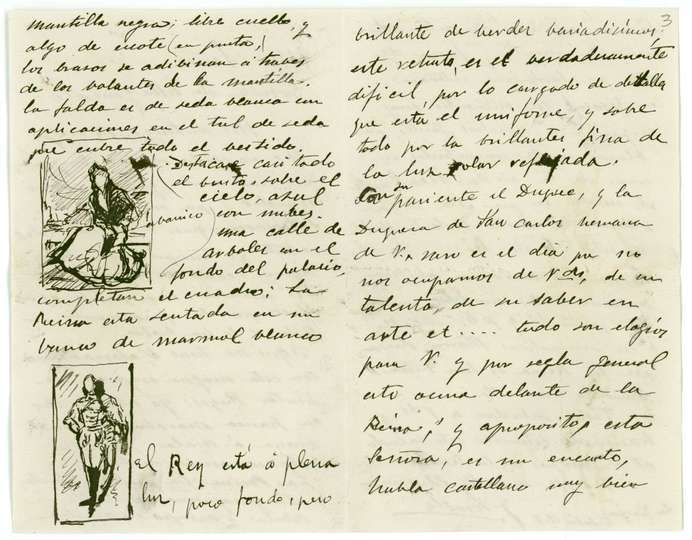 mantilla negra; libre cuello, y
algo de escote (en punta,)
los brasos se adibinan a trabes
de los bolantes de la mantilla.
la falda es de seda blanca con
aplicaciones en el tul de seda
que cubre todo el bestido.
Destacase casi todo
el busto, sobre el
cielo, azul
abanico
con nubes.
una calle de
arboles en el
fondo del palacio,
completan el cuadro; La
Reina esta sentada en un
banco de marmol blanco
el Rey está á plena
luz, poco fondo, pero
3
brillante de berdes bariadisimos:
este retrato, es el berdaderamente
dificil, por lo cargado de detalles
que está el uniforme, y sobre
todo por la brillantes fisra de
la luz solar reflejada.
Con su pariente el Duque, y la
Duquesa de San Carlos hermana
de V. raro es el dia qe no
nos ocupamos de Vds, de su
talento, de su saber en
arte et.... todo son elogios
para V. y por regla general
esto ocurre delante de la
Reina; y apropósito, esta
Señora, es un encanto,
habla castellano muy bien